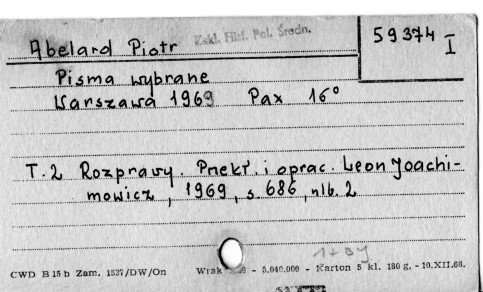 Abelard Piotr
Zakł. Hist. Pol. Średn.
59374 I
Pisma wybrane
Warszawa 1969 Pax 16°
T.2 Rozprawy. Przekł. i oprac. Leon Joachi-
mowicz, 1969, s. 686, nlb. 2
CWD B 15 b Zam. 1537/DW/On - 5.040.000 - Karton 5 kl. 180 g, - 10.XII.68.